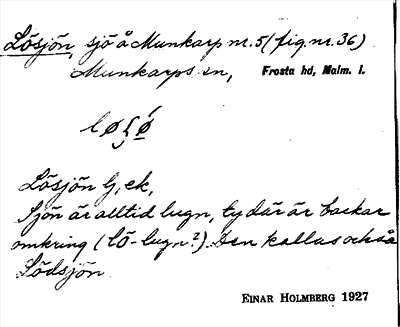 Lösjön, sjö å Munkarp nr. 5 (fig. nr. 36)
Munkarps sn, Frosta hd, Malm. l.
Lösjön G, ek,
Sjön är alltid lugn, ty där är backar
omkring (lö - lugn?). Den kallas också
Lödsjön
EINAR HOLMBERG 1927